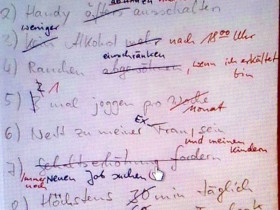 abnehmen und
2) Handy öfters ausschalten
weniger
3) kein Alkohol mehr nach 18 00 Uhr
einschränken
4) Rauchen abgewöhnen, wenn ich erkältet bin
1
5) 2 mal joggen pro Woche
Monat
Ex
6) Nett zu meiner Frau sein
und meinen Kindern
7) Gehaltserhöhung fordern
immer noch Neuen Job suchen
8) Höchstens 20 min täglich